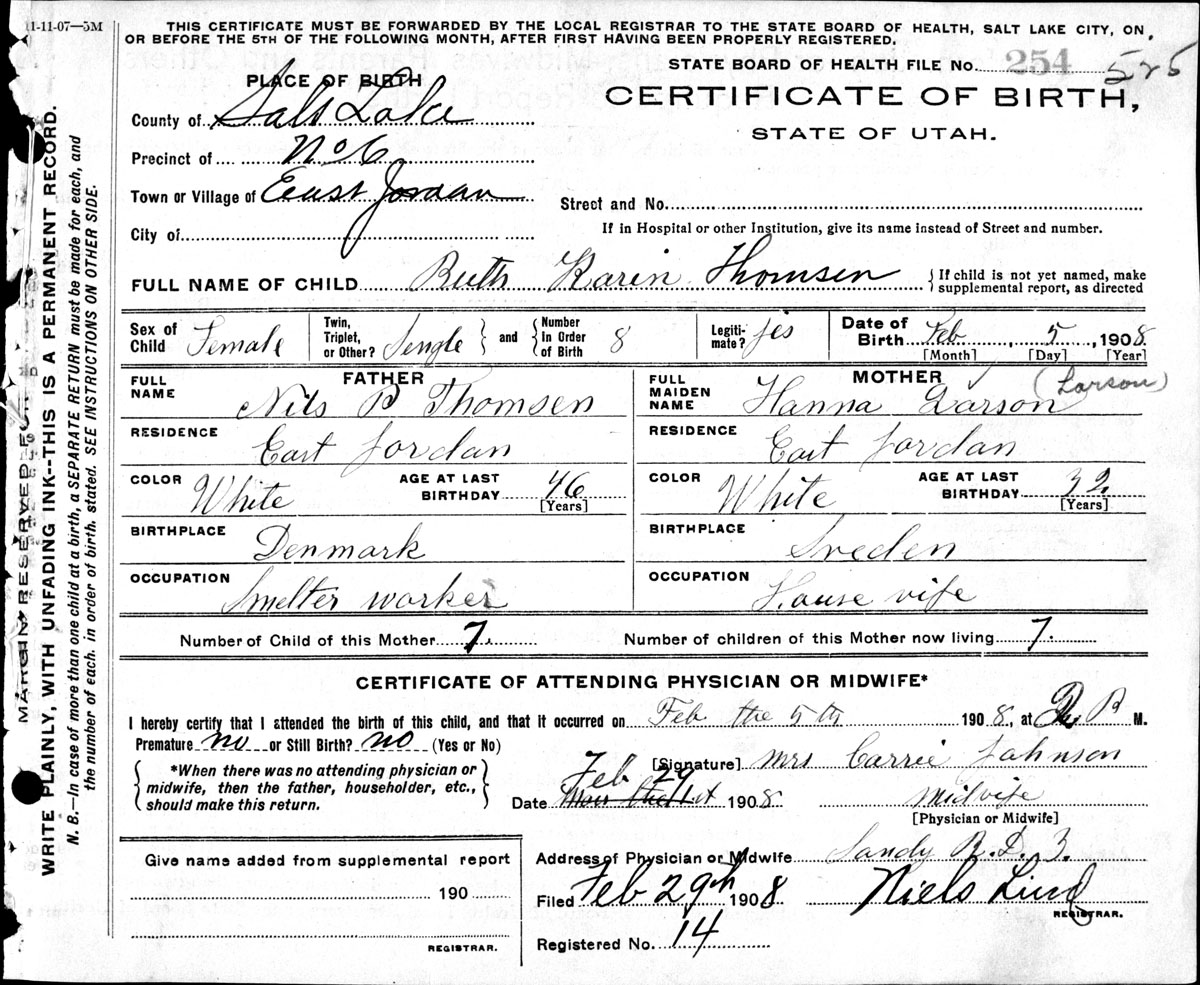 11-11-07—5M
THIS CERTIFICATE MUST BE FORWARDED BY THE LOCAL REGISTRAR TO THE STATE BOARD OF HEALTH, SALT LAKE CITY, ON
OR BEFORE THE 5TH OF THE FOLLOWING MONTH, AFTER FIRST HAVING BEEN PROPERLY REGISTERED.
STATE BOARD OF HEALTH FILE No. 254 525
CERTIFICATE OF BIRTH,
STATE OF UTAH.
PLACE OF BIRTH
County of Salt Lake
Precinct of No 6
Town or Village of East Jordan
City of
Street and No.
If in Hospital or other Institution, give its name instead of Street and number.
FULL NAME OF CHILD Ruth Karin Thomsen { If child is not yet named, make
supplemental report, as directed
Sex of Child Female
Twin, Triplet, or Other? Sengle } and { Number In Order of Birth 8
Legiti-mate? jes
Date of Birth Feb 5, 1908
[Month] [Day] [Year]
FATHER
FULL NAME Nils P Thomsen
RESIDENCE East Jordan
COLOR White AGE AT LAST BIRTHDAY 46 [Years]
BIRTHPLACE Denmark
OCCUPATION Smelter worker
MOTHER
FULL MAIDEN NAME Hanna Larson (Larson)
RESIDENCE East Jordan
COLOR White AGE AT LAST BIRTHDAY 32 [Years]
BIRTHPLACE Sveden
OCCUPATION House vife
Number of Child of this Mother 7. Number of children of this Mother now living 7.
CERTIFICATE OF ATTENDING PHYSICIAN OR MIDWIFE*
I hereby certify that I attended the birth of this child, and that it occurred on Feb the 5th 1908, at P M.
Premature no or Still Birth? no (Yes or No)
{ *When there was no attending physician or
midwife, then the father, householder, etc.,
should make this return. }
[Signature] Mrs Carrie Johnson
Feb 29
Date 1908 Midvife
[Physician or Midwife]
Address of Physician or Midwife Sandy R.D. 3.
Filed Feb 29th 1908 Niels Lind
REGISTRAR.
Registered No. 14
Give name added from supplemental report
190
REGISTRAR.
MARGIN RESERVED FOR
WRITE PLAINLY, WITH UNFADING INK--THIS IS A PERMANENT RECORD.
N. B.—In case of more than one child at a birth, a SEPARATE RETURN must be made for each, and
the number of each, in order of birth, stated. SEE INSTRUCTIONS ON OTHER SIDE.